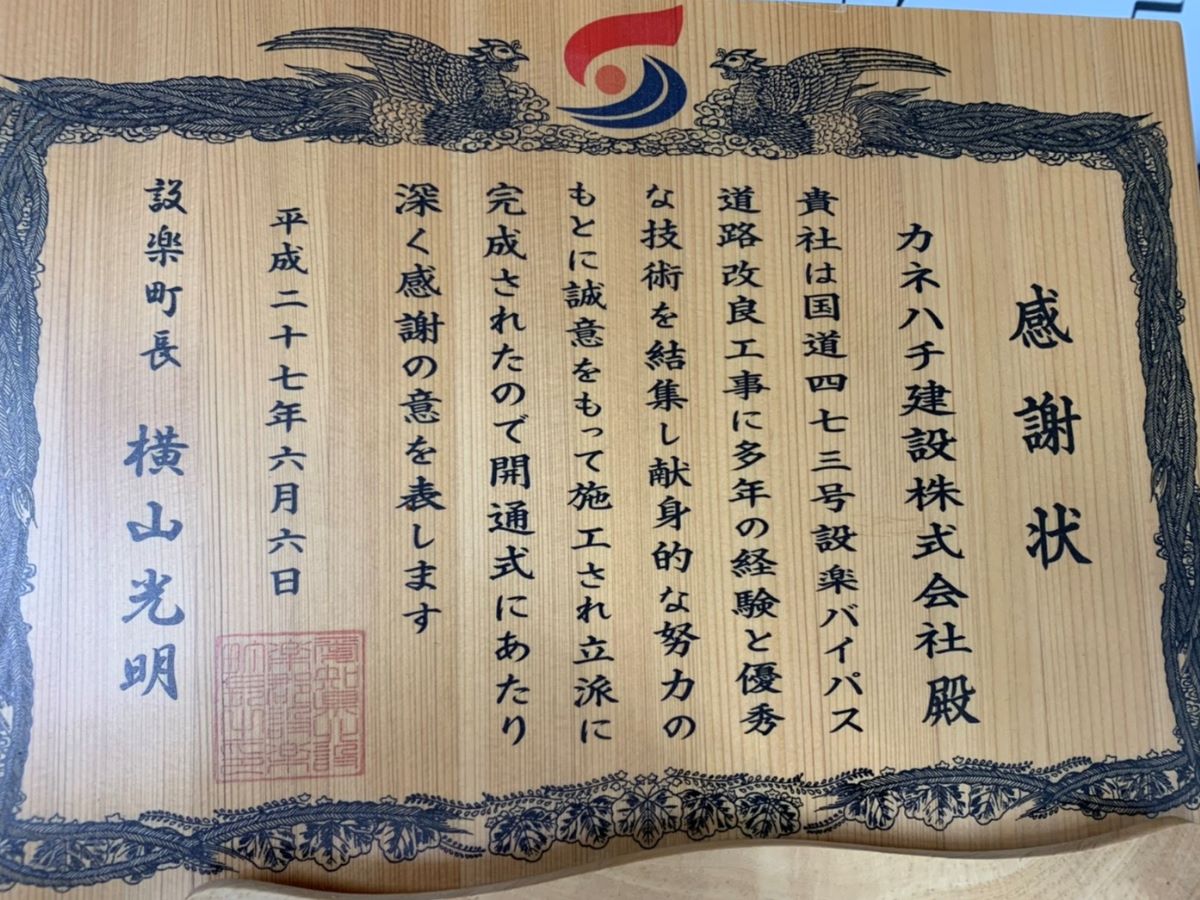 感謝状
カネハチ建設株式会社殿
貴社は国道四七三号設楽バイパス
道路改良工事に多年の経験と優秀
な技術を結集し献身的な努力の
もとに誠意をもって施工され立派に
完成されたので開通式にあたり
深く感謝の意を表します
平成二十七年六月六日
設楽町長 横山光明